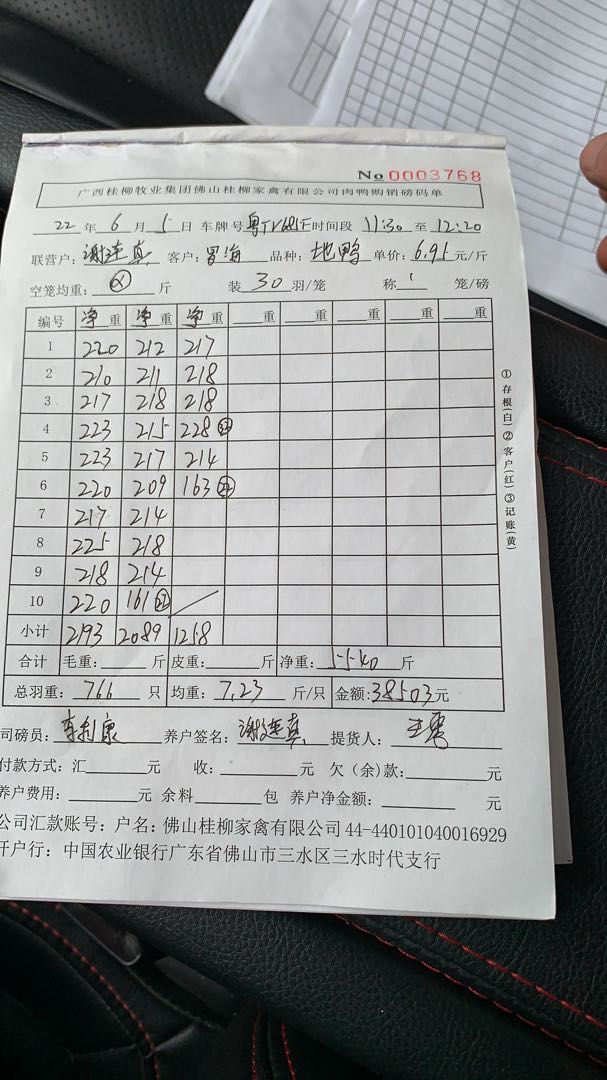 No 0003768
广西桂柳牧业集团佛山桂柳家禽有限公司肉鸭购销磅码单
22 年 6 月 5 日 车牌号 时间段 11:30 至 12:20
联营户: 谢连真 客户: 品种: 地鸭 单价: 6.95 元/斤
空笼均重: 斤 装 30 羽/笼 称 1 笼/磅
编号 净重 净重 净重 重 重 重 重 重
1 220 212 217
2 210 211 218
3 217 218 218
4 223 215 228
5 223 217 214
6 220 209 163 22
7 217 214
8 225 218
9 218 214
10 220 161
小计 2193 2089 1258
合计 毛重: 斤 皮重: 斤 净重: 5540 斤
总羽重: 766 只 均重: 7.23 斤/只 金额: 38503 元
司磅员: 养户签名: 谢连真 提货人:
付款方式: 汇 元 收: 元 欠(余)款: 元
养户费用: 元 余料 包 养户净金额: 元
公司汇款账号: 户名: 佛山桂柳家禽有限公司 44-440101040016929
开户行: 中国农业银行广东省佛山市三水区三水时代支行
①存根(白)②客户(红)③记账(黄)